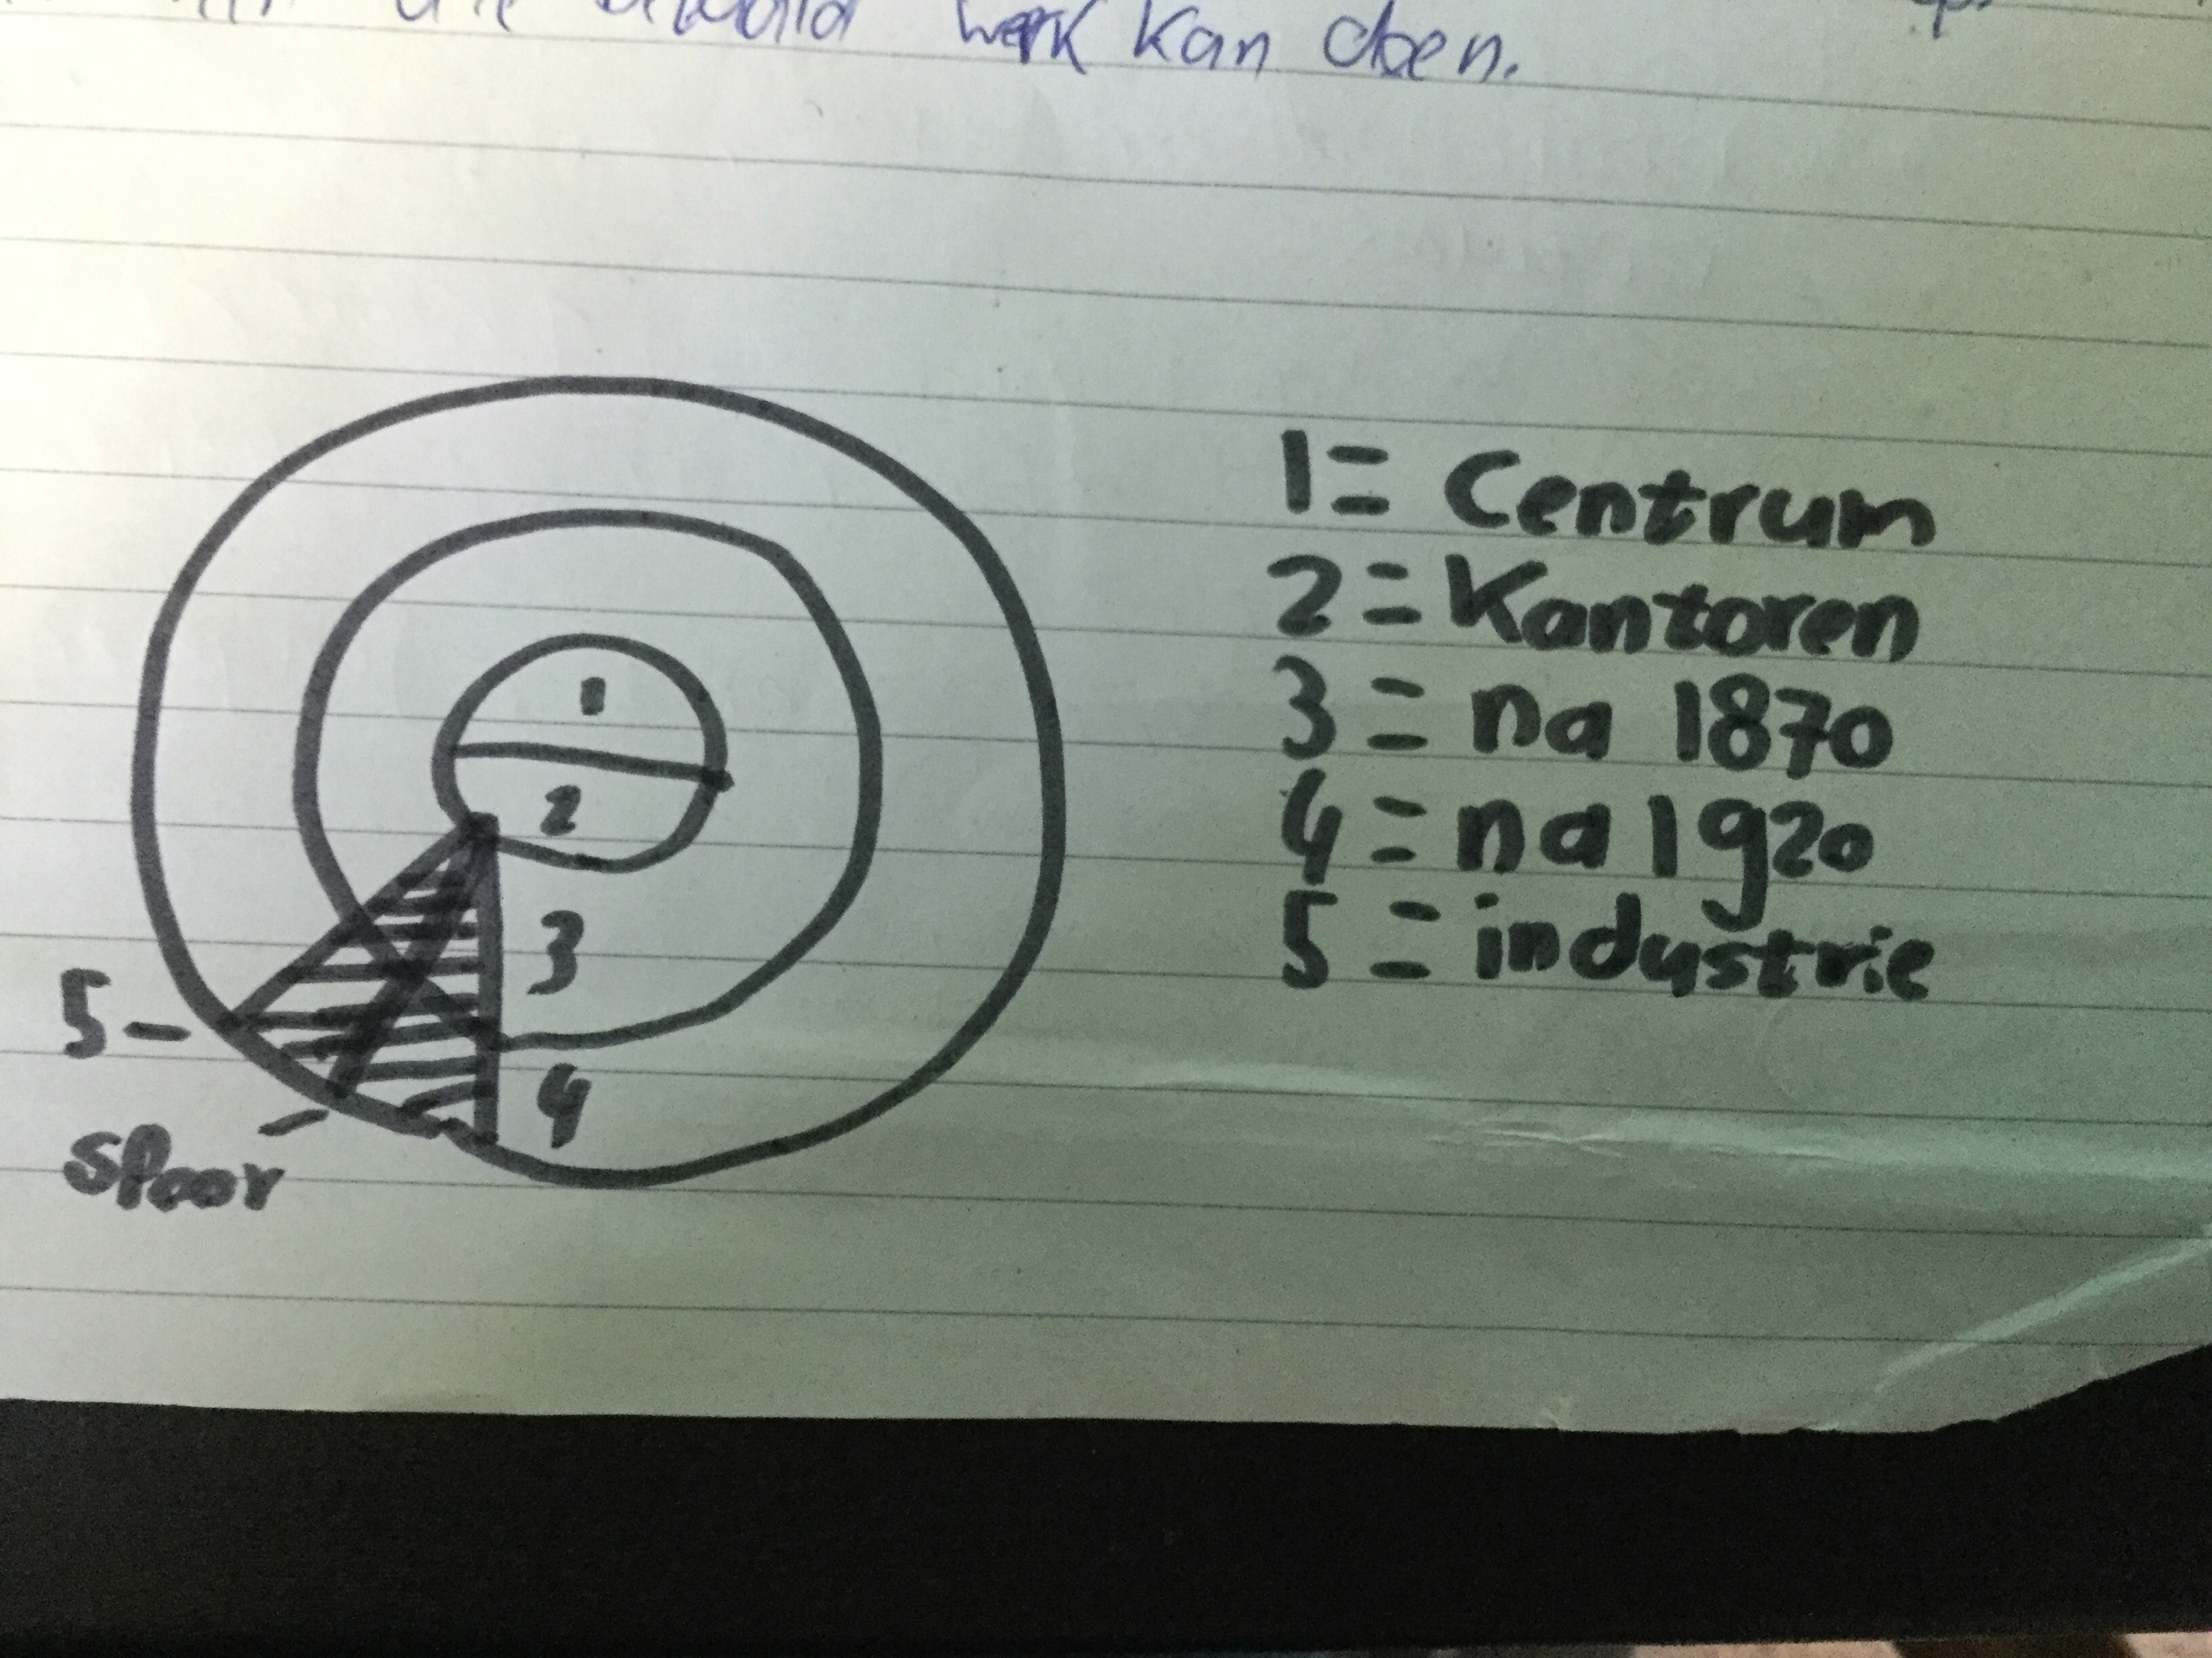 werk kan doen.
1
2
3
4
5 -
spoor
1 = Centrum
2 = Kantoren
3 = na 1870
4 = na 1920
5 = industrie